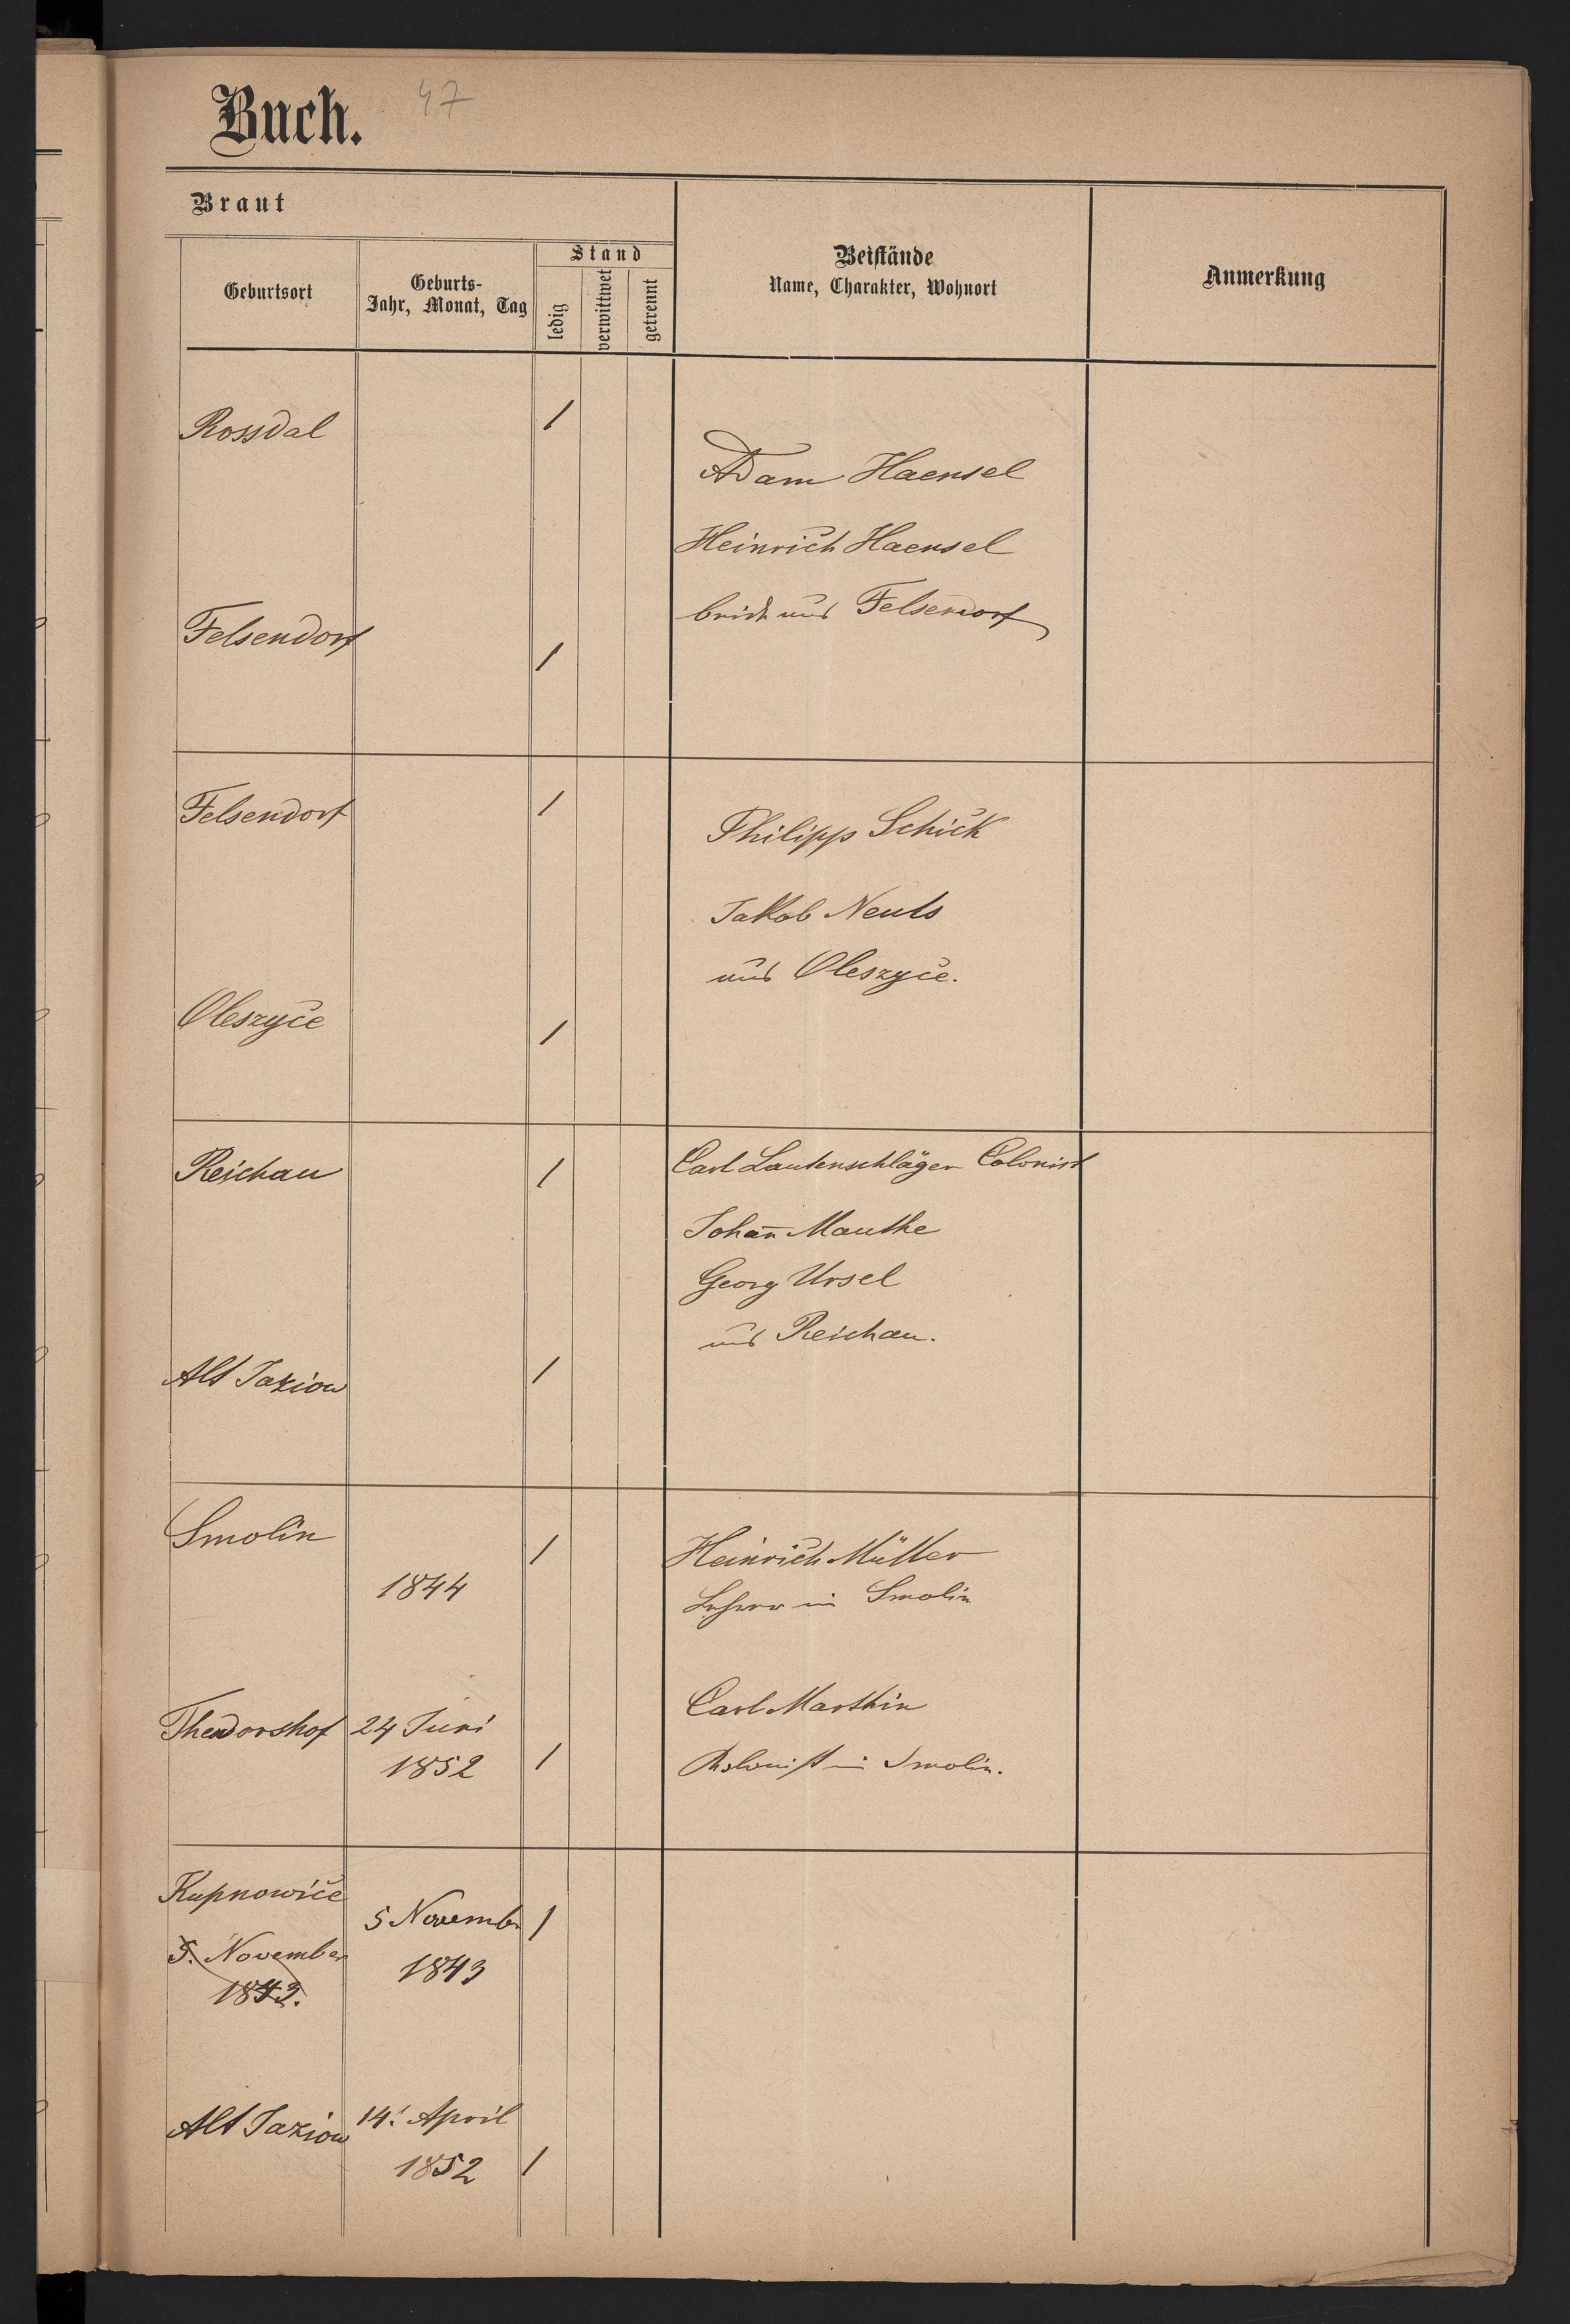 Buch. 47
Braut
Geburtsort
Geburts-
Jahr, Monat, Tag
Stand
ledig
verwittwet
getrennt
Beistände
Name, Charakter, Wohnort
Anmerkung
Rossdal /
Adam Haensel
Heinrich Haensel
beide aus Felsendorf
Felsendorf /
Felsendorf /
Philipp Schick
Jakob Neuls
aus Oleszyce.
Oleszyce /
Reichau / Carl Lautenschläger Colonist
Johan̅ Mauthe
Georg Ursel
aus Reichau.
Alt Jaziow /
Smolin / Heinrich Müller
1844 Lehrer in Smolin
Carl Marthin
Theodorshof 24 Juni
1852 / Kolonist in Smolin.
Kupnowice
5 November /
5. November
1843
1843.
Alt Jaziow 14. April
1852 /